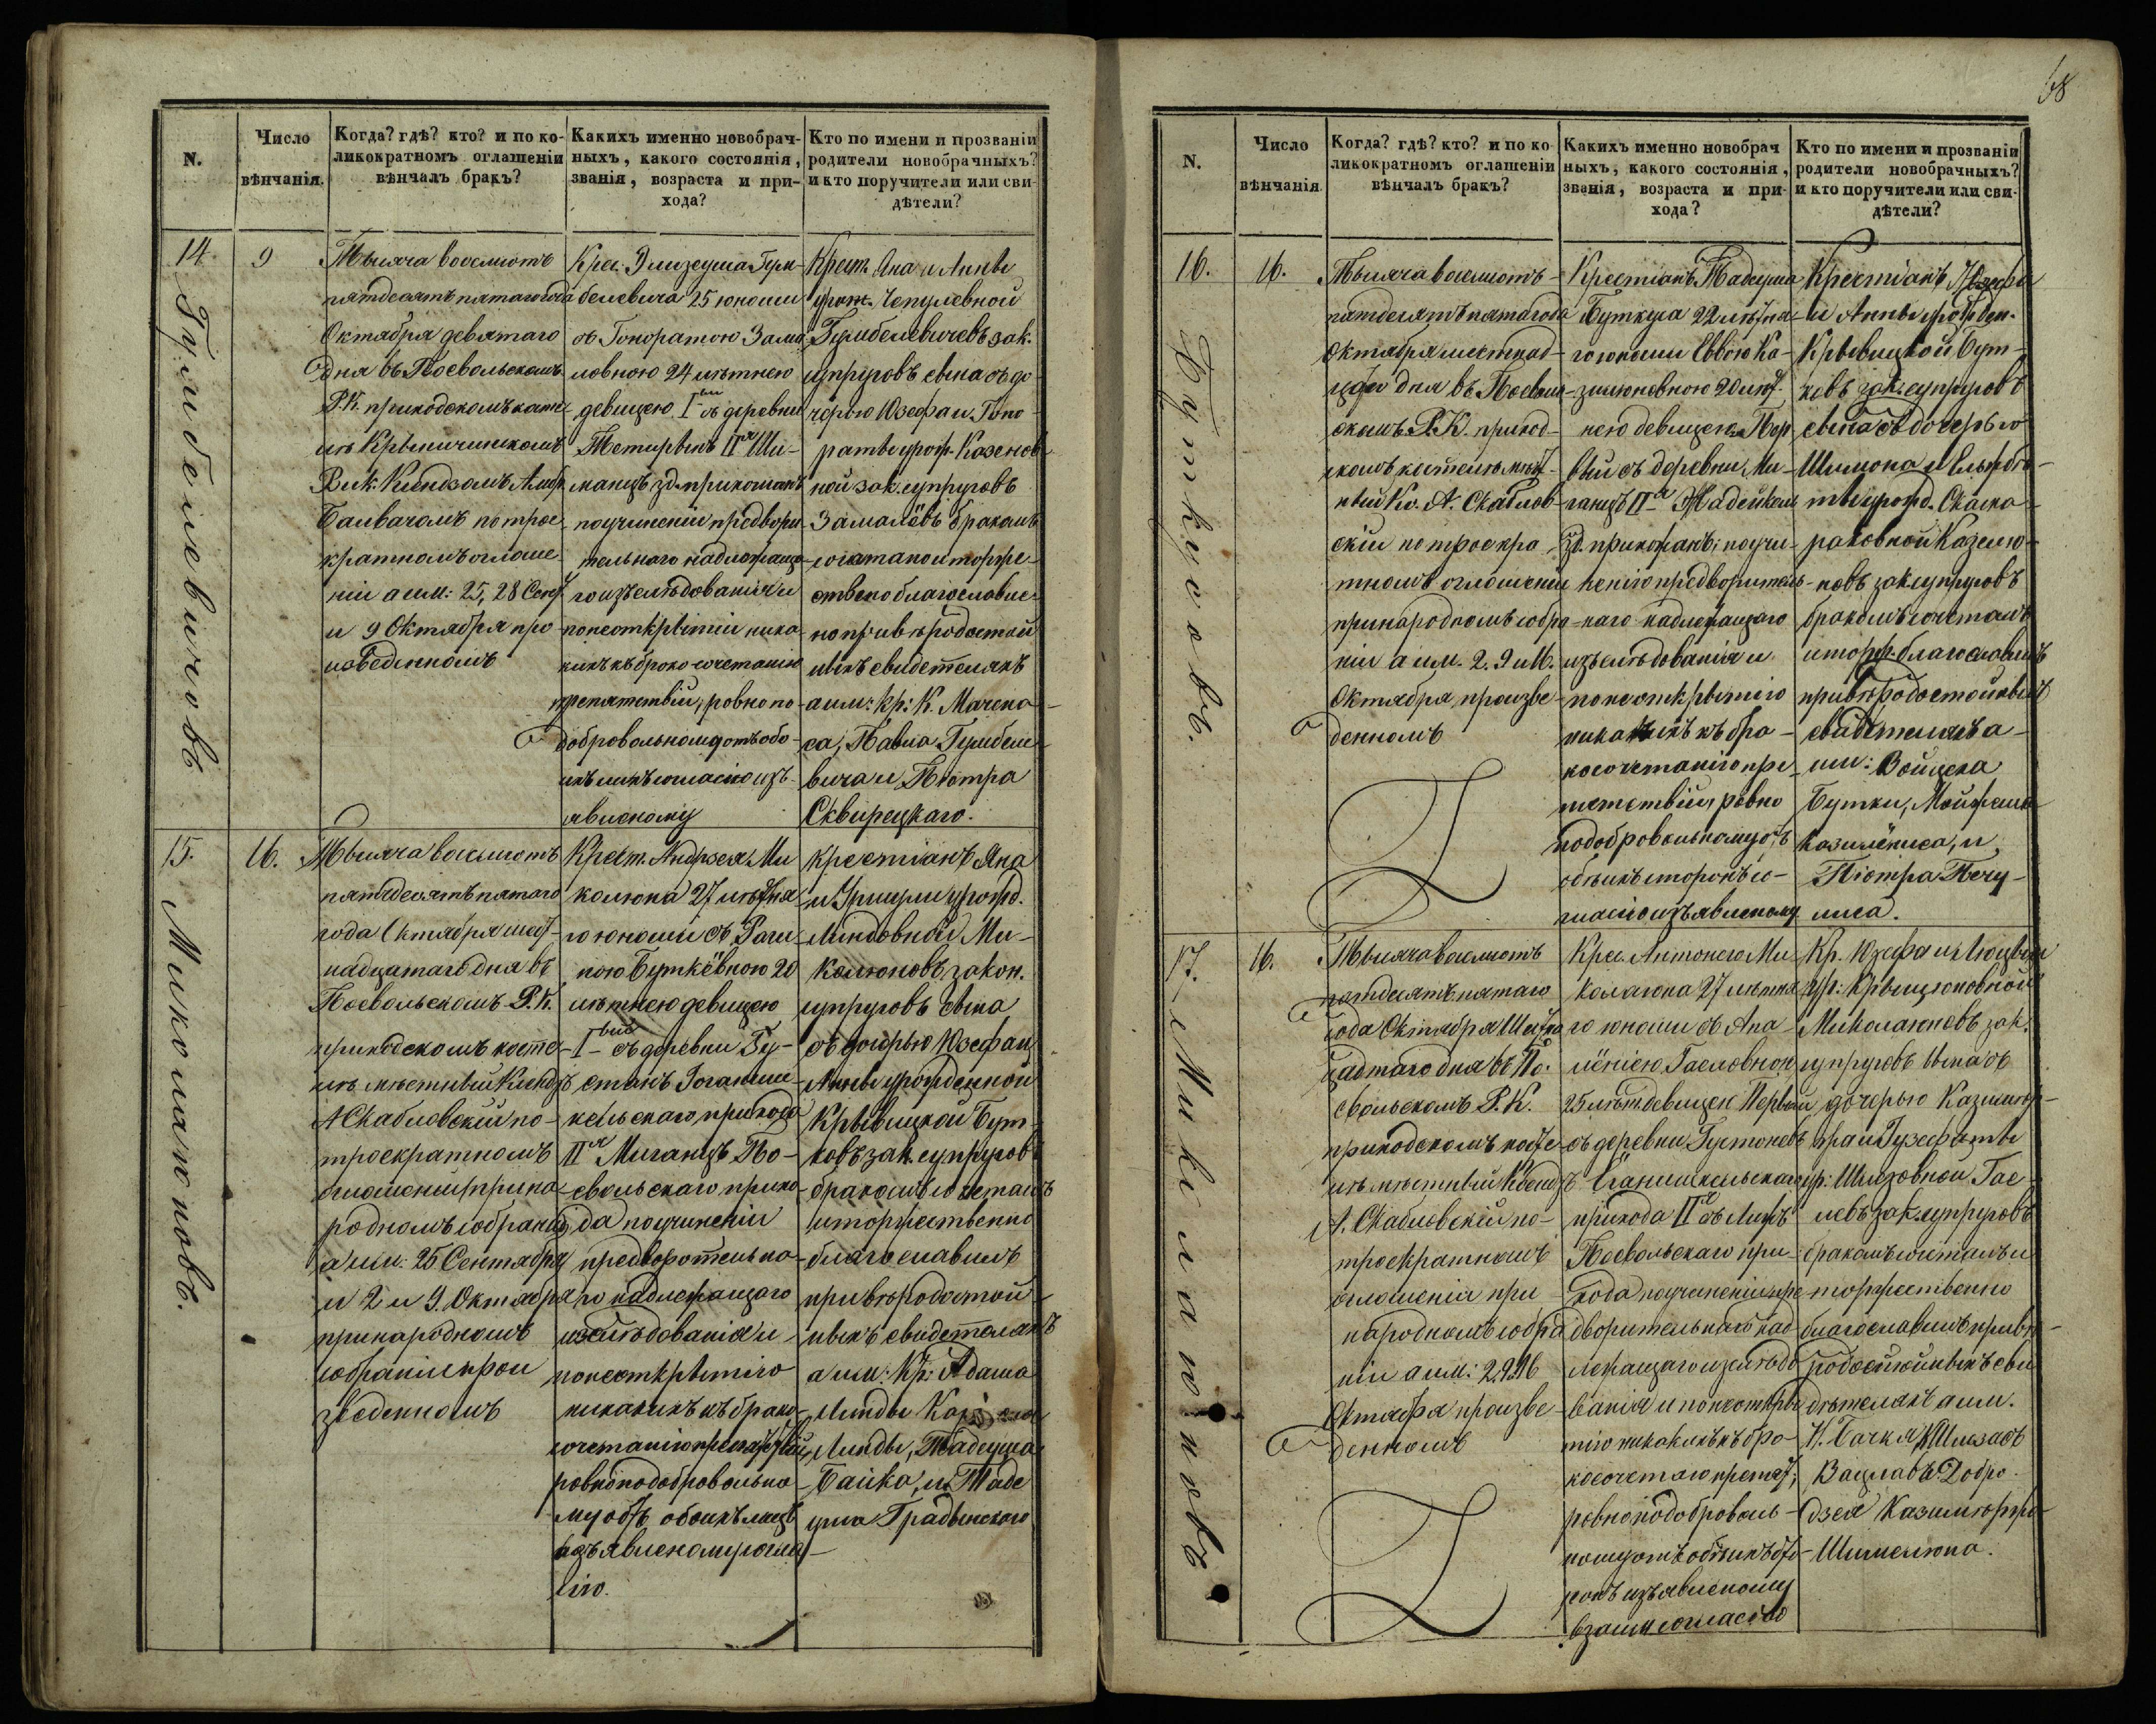 N.
Число
вѣнчанія.
Когда? гдѣ? кто? и по ко-
ликократномъ оглашеніи
вѣнчалъ бракъ?
Какихъ именно новобрач-
ныхъ, какого состоянія,
званія, возраста и при-
хода?
Кто по имени и прозванію
родители новобрачныхъ?
и кто поручители или сви-
дѣтели?
14.
Гумбелевичовъ
9
Тысяча восемьсотъ
пятдесятъ пятаго года
Октября девятаго
дня въ Поевольскомъ
Р.К. приходскомъ косте
лѣ Крыничинскомъ
Вик. Ксендзомъ Амбр.
Балвачомъ по трое
кратномъ оглаше
ніи а им: 25, 28 Сент.
и 9 Октября про
изведенномъ
Крес: Элизеуша Гум-
белевича 25 юноши
съ Гоноратою Зама
ловною 24 лѣтнею
девицею I съ деревни
II Ши-
манцъ зд. прихожанъ
по учиненіи предвори
тельнаго надлежаща
го изъслѣдованія и
по неоткрытіи ника
кихъ къ брако-сочетанію
препятствій, ровно по
добровольному отъ обо
ихъ лицъ согласію изъ-
явленному
Крест. Яна и Анны
урож. Чепулевной
Гумбелевичевъ зак.
супруговъ сына съ до
черью Юзефа и Гоно
раты урож. Казенов
ной зак. супруговъ
Замалёвъ бракомъ
сочеталъ и торже-
ственно благословил
но при вѣродостой
ныхъ свидетеляхъ
а им: кр: К. Мачена
са, Павла Гумбеле
вича и Піотра
Сквирецкаго.
15.
Миколаюновъ.
16.
Тысяча восемьсотъ
пятьдесятъ пятаго
года Октября шест
надцатаго дня въ
Поевольскомъ Р.К.
приходскомъ косте
лѣ мѣстный Ксендзъ
А Скабловскій по
троекратномъ
оглашеніи при на
родномъ собраніи
а им: 25 Сентября
и 2 и 9. Октября
при народномъ
собраніи прои
зведенномъ
Крест. Андржея Ми
колюна 27 лѣтня
го юноши съ Раги-
ною Буткёвною 20
лѣтнею девицею
I вый съ деревни Гу-
стакъ Роганиш-
кельскаго прихода
II я Миганцъ По-
евольскаго прихо-
да по учиненіи
предворительна
го надлежащаго
изслѣдованія и
по неоткрытію
никакихъ къ брако-
сочетанію препятствій
ровно по добровольно
му отъ обоихъ лицъ
изъявленному согла
сію.
Крестіанъ Яна
и Уршули урожд.
Линдовной Ми-
колюновъ закон.
супруговъ сына
съ дочерью Юзефа и
Анны урожденной
Крывицкой Бут-
ковъ зак. супруговъ
бракомъ сочеталъ
и торжественно
благославилъ
при вѣродостой
ныхъ свидетеляхъ
а им: Кр: Адама
Линды
Линды, Тадеуша
Банка, и Таде
уша Традынского
58
N.
Число
вѣнчанія.
Когда? гдѣ? кто? и по ко
ликократномъ оглашеніи
вѣнчалъ бракъ?
Какихъ именно новобрач
ныхъ, какого состоянія,
званія, возраста и при-
хода?
Кто по имени и прозваніи
родители новобрачныхъ?
и кто поручители или сви-
дѣтели?
16.
Буткисовъ.
16.
Тысяча восемьсотъ
пятдесятъ пятаго года
Октября шестнад-
цаты дня въ Поеволь
скомъ Р.К. приход-
скомъ костелѣ мѣст-
ный Кс. А. Скаблов-
скій по троекра
тномъ оглашеніи
при народномъ собра
ніи а им. 2. 9 и 16.
Октября, произве
денномъ
Крестіанъ Тадеуша
Буткуса 22 лѣтня
го юноши съ Евою Ка-
зилюневною 20 лѣт
нею девицею. Пер
вый съ деревни Ми-
ганцъ II я
зд. прихожанъ; по учи-
ненію предворитель-
наго надлежащаго
изъслѣдованія и
по неоткрытію
никакихъ къ бра-
косочетанію пре
пятствій, ровно
по добровольному отъ
обоихъ сторонъ со-
гласію изъявленному
Крестіанъ Юзефа
и Анны урожден.
Крывицкой Бут-
ковъ зак. супруговъ
сына съ дочерью
Шимона и Ельжбе-
ты урожд. Скаска
раковной Казелю-
новъ зак. супруговъ
бракомъ сочеталъ
и торж. благословилъ
при вѣродостойныхъ
свидетеляхъ а
им: Войцеха
Бутки, Мойжеша
Казилёниса, и
Піотра Печу-
лиса.
17.
Миколаюновъ
16.
Тысяча восемьсотъ
пятдесятъ пятаго
года Октября Шестна
дцатаго дня въ По-
евольскомъ Р.К.
приходскомъ косте
лѣ мѣстный Ксендзъ
А. Скабловскій по-
троекратномъ
оглашеніи при
народномъ собра
ніи а им: 2, 9, 16
Октября произве
денномъ
Крес. Антонего Ми
колаюна 27 лѣтня
го юноши съ Апа-
лёніею Гаеловною
25 лѣт. девицею Первый
съ деревни Густоневъ
прихода II я съ Лицъ
Поевольскаго при-
хода по учиненіи пре
дворительнаго над
лежащаго изслѣдо
ванія и по неоткры
тію никакихъ къ бра-
косочетаю препят;
ровно по доброволь-
ному отъ обоихъ сто
ронъ изъявленному
взаим. согласію
Кр. Юзефа и Люцыи
ур: Крыщюновной
Миколаюновъ зак.
супруговъ сына съ
дочерью Казимір-
жа и Гузефаты
ур: Шилзовной Гае
левъ зак. супруговъ
бракомъ сочеталъ и
торжественно
благославилъ при вѣ-
родостойныхъ сви
дѣтеляхъ а им.
Вацлавъ Добро-
дзея Казиміржа
Шимелюна.